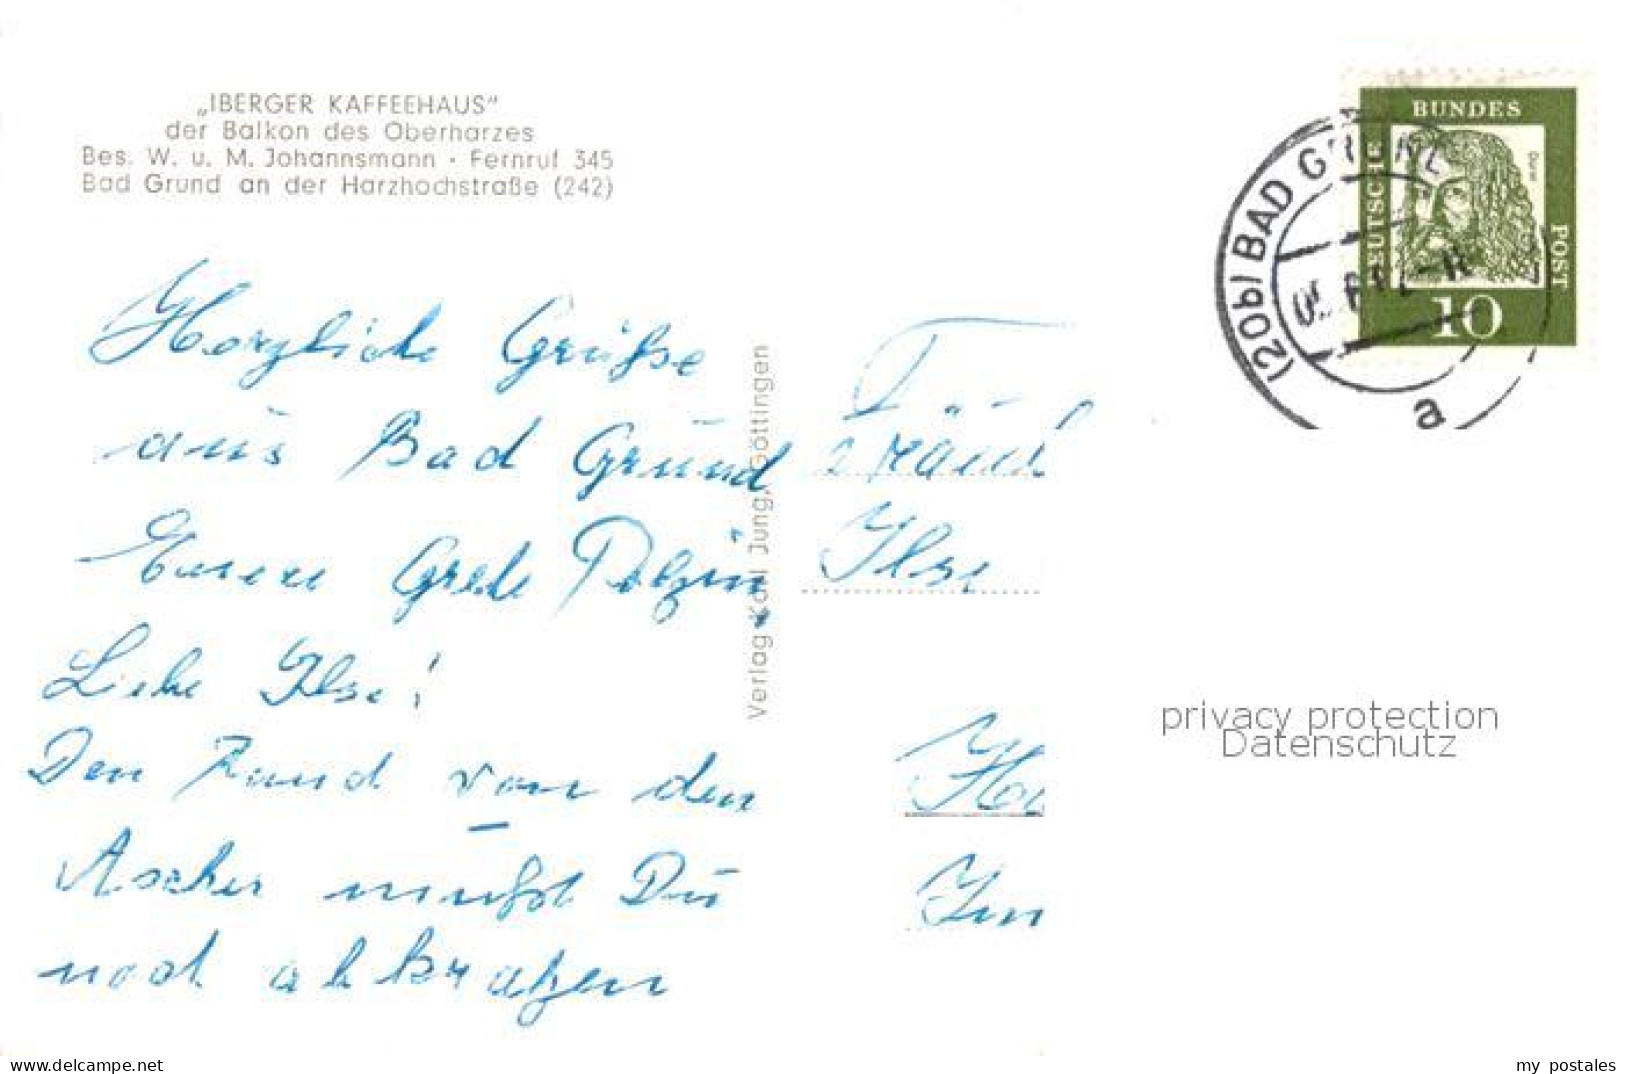 „IBERGER KAFFEEHAUS"
der Balkon des Oberharzes
Bes. W. u. M. Johannsmann · Fernruf 345
Bad Grund an der Harzhochstraße (242)
Herzliche Grüße
aus Bad Grund
Euere Grete Polzin
Liebe Ilse!
Den Rand von den
Ascher mußt Du
noch abkratzen
Verlag Karl Jung, Göttingen
Ilse
BUNDES
DEUTSCHE
POST
Dürer
10
(20b) BAD GRUND
a
privacy protection
Datenschutz
www.delcampe.net
my_postales